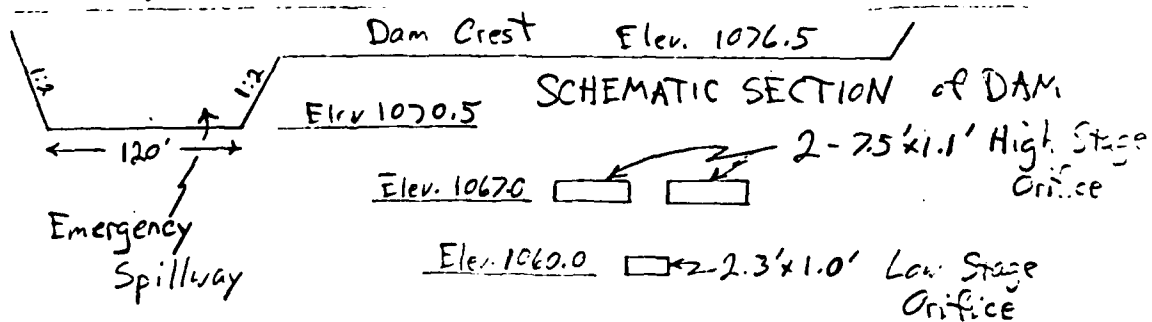 Dam Crest Elev. 1076.5
1:2 1:2
SCHEMATIC SECTION of DAM
Elev 1070.5
120'
2 - 7.5'x1.1' High Stage
Orifice
Elev. 1067.0
Emergency
Spillway
Elev. 1060.0
2.3'x1.0' Low Stage
Orifice